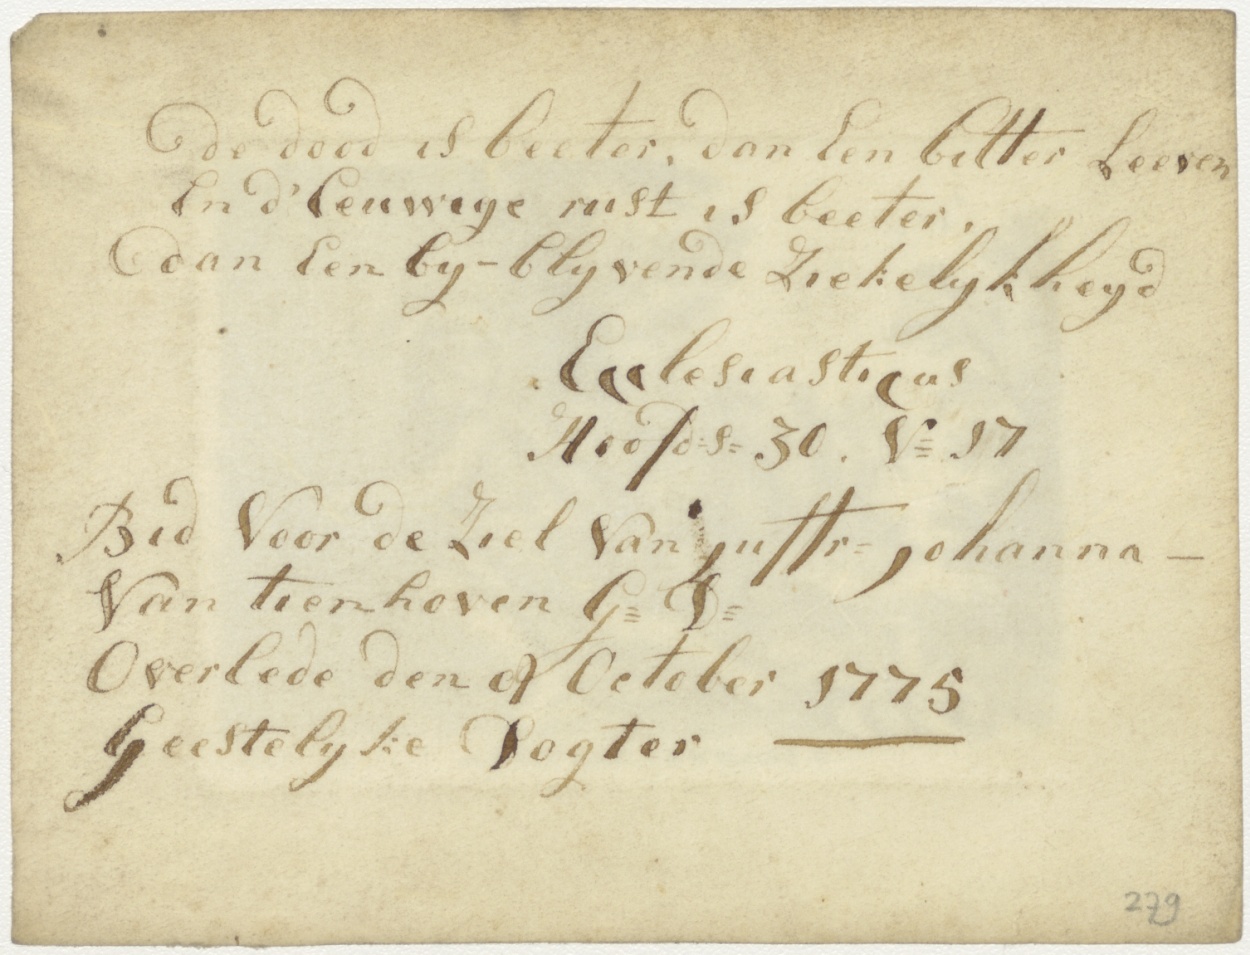 De dood is beeter, dan Een bitter Leeven
En d'Eeuwige rust is beeter,
dan Een by-blyvende Ziekelykheyd
Ecclesiasticus
Hoofd=s= 30. V= 17
Bid Voor de Ziel Van juffr= johanna —
Van tienhoven G= D=
Overlede den 9 October 1775
Geestelyke Dogter
279